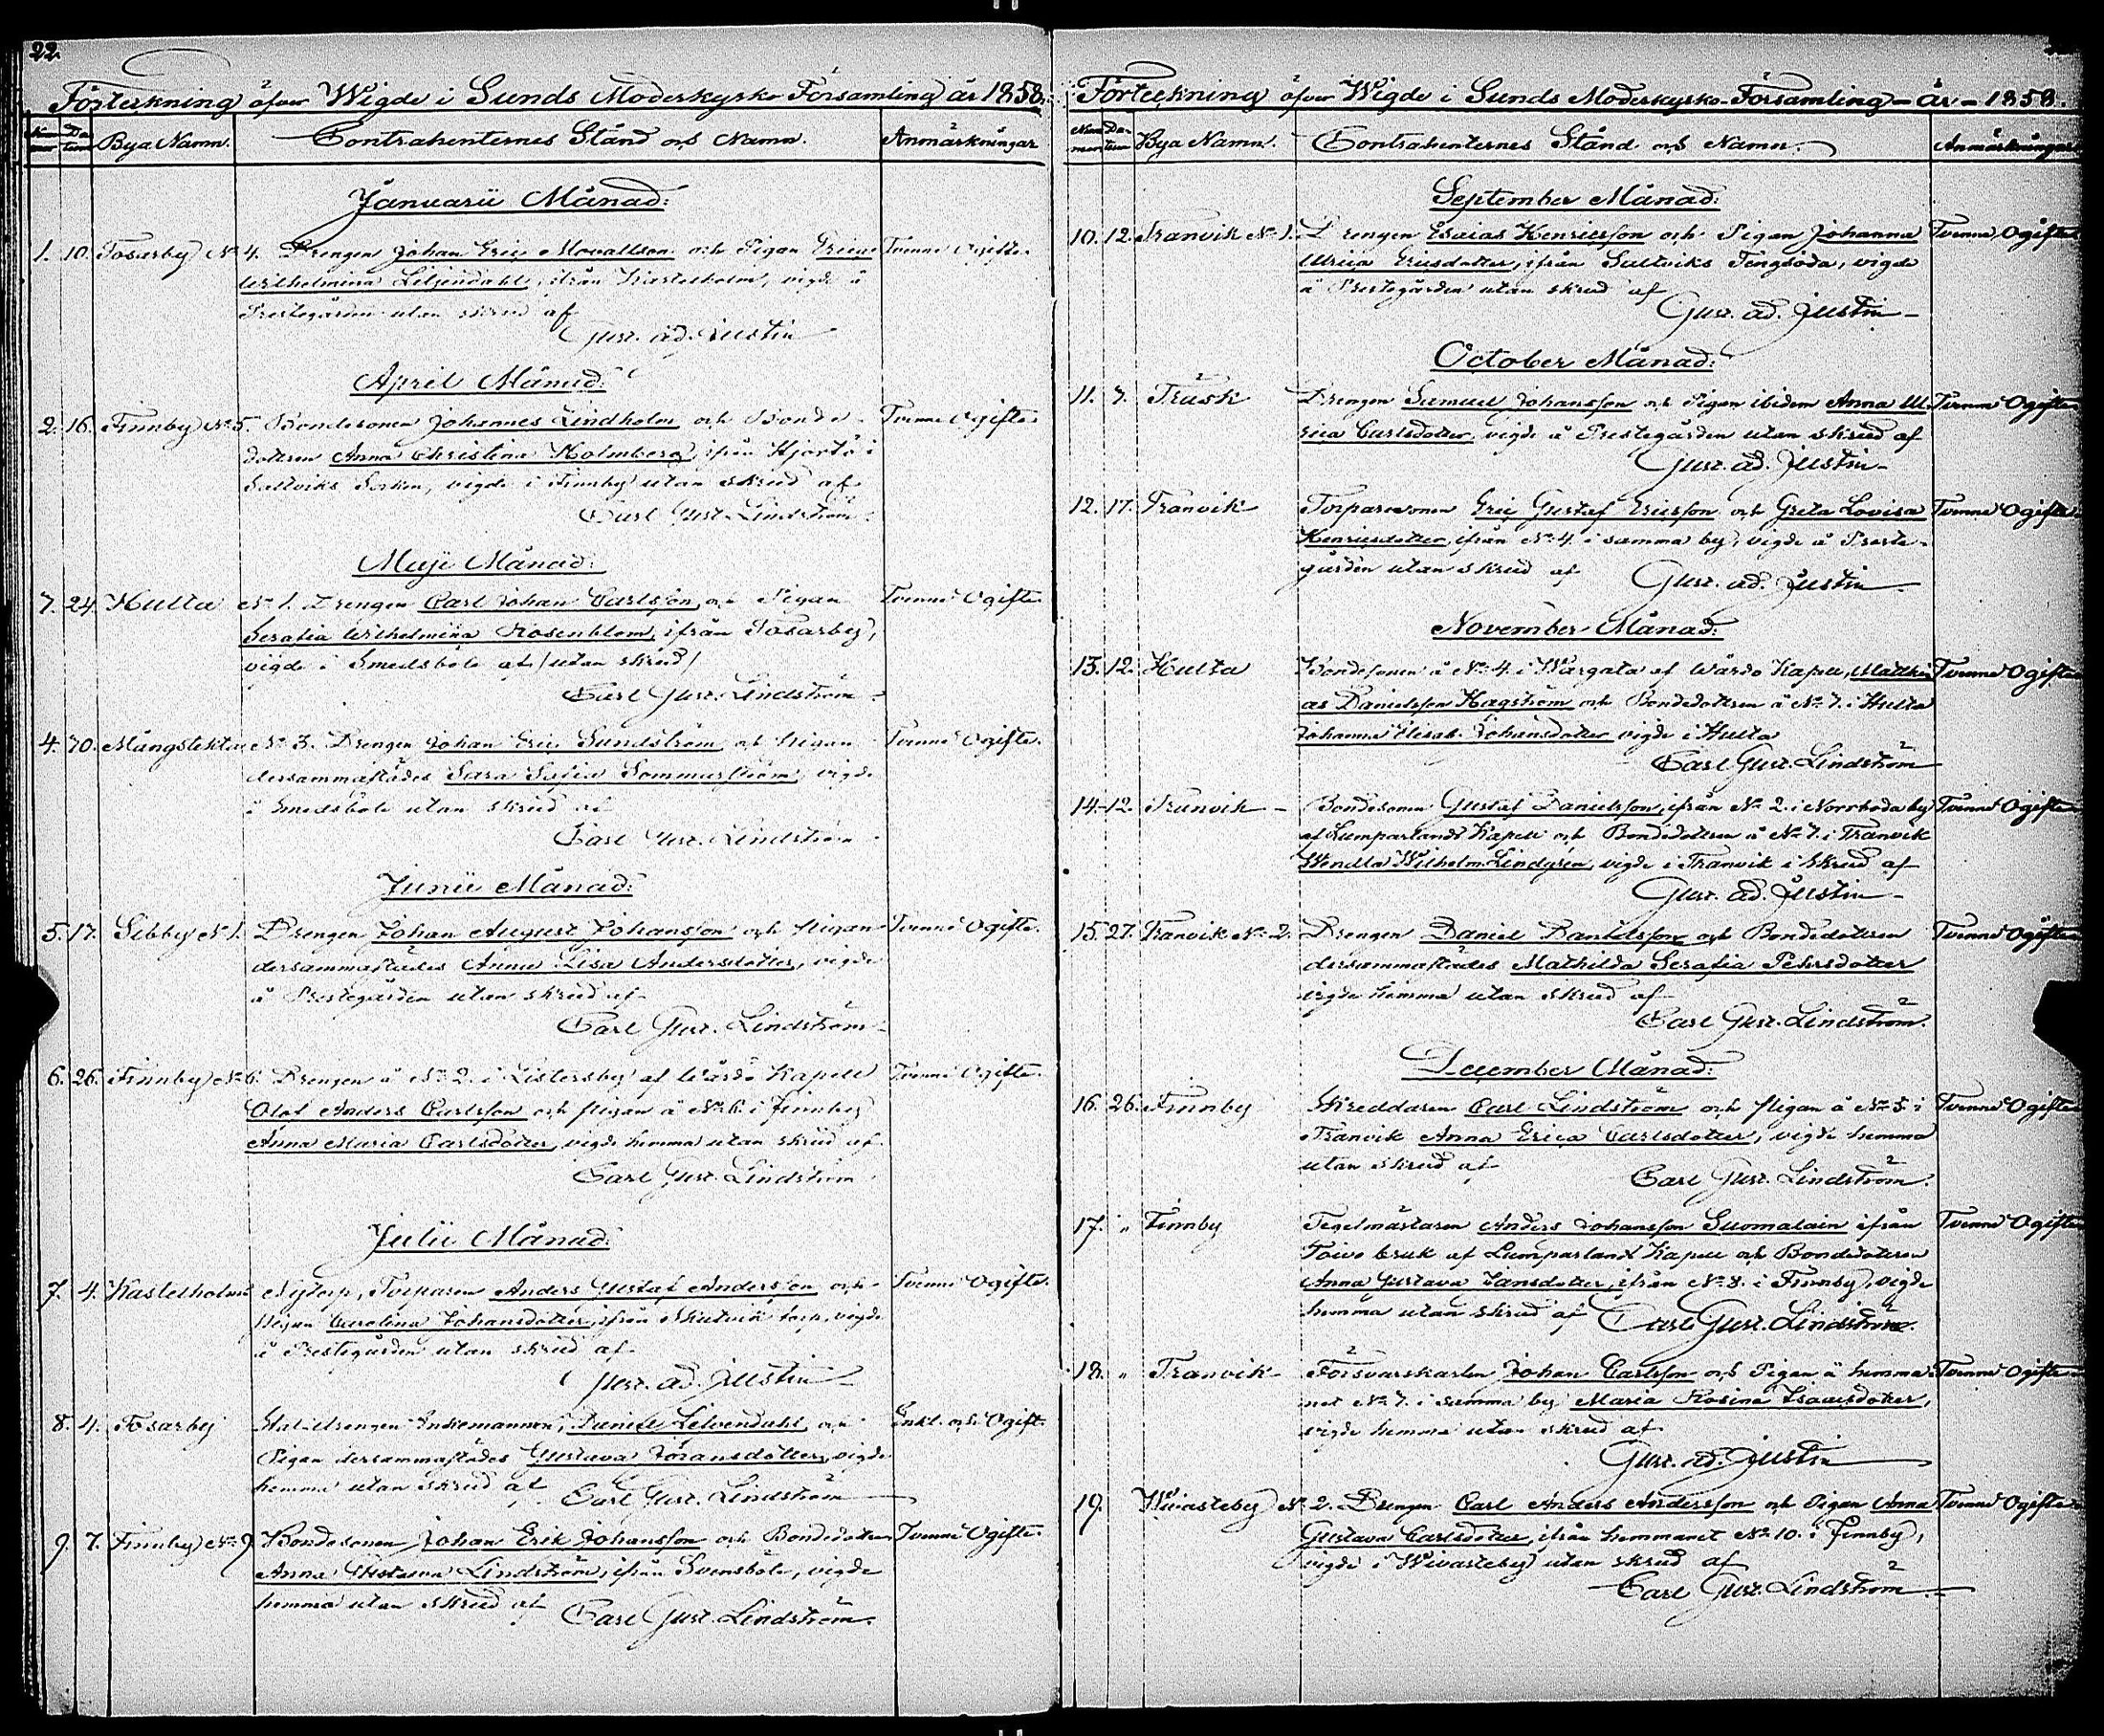 22.
Förteckning öfver Wigde i Sunds Moderkyrko Församling år 1858.
Num mer Da tum Bya Namn. Contrahenternes Stånd och Namn. Anmärkningar
Januarii Månad:
1. 10. Tosarby No 4. Drengen Johan Eric och Pigan Erica Tvenne Ogifte.
Wilhelmina Liljendahl, ifrån Kastelholm, vigde å
Prestegården utan skrud af
Gust. ad. Justin
April Månad:
2. 16. Finnby No 5. Bondesonen Johannes Lindholm och Bonde- Tvenne Ogifte.
dottren Anna Christina Holmberg, ifrån Hjortö i
Saltviks Socken, vigde i Finnby utan skrud af
Carl Gust. Lindström.
Maji Månad:
24. Hulta No 1. Drengen Carl Johan Carlsson, och Pigan Tvenne Ogifte.
Serafia Wilhelmina Rosenblom, ifrån Tosarby,
vigde i Smedsböle af /utan skrud/
Carl Gust. Lindström.
4. 30. Mångstekta No 3. Drengen Johan Eric Sundström och Pigan Tvenne Ogifte.
dersammastädes Sara Sofia Sommarström, vigde
i Smedsböle utan skrud af
Carl Gust. Lindström
Junii Månad:
5. 17. Sibby No 1. Drengen Johan August Johansson och Pigan Tvenne Ogifte.
dersammastädes Anna Lisa Andersdotter, vigde
å Prestegården utan skrud af
Carl Gust. Lindström
6. 26. Finnby No 6. Drengen å No 2. i Listersby af Wårdö Kapell Tvenne Ogifte.
Olof Anders Carlsson och Pigan å No 6. i Finnby
Anna Maria Carlsdotter, vigde hemma utan skrud af
Carl Gust. Lindström
Julii Månad:
7. 4. Kastelholm Nytorp, Torparen Anders Gustaf Andersson och Tvenne Ogifte.
Pigan Carolina Johansdotter, ifrån torp, vigde
å Prestegården utan skrud af
Gust. ad. Justin
8. 4. Tosarby Enkemannen, Daniel och Enkl. och Ogift.
Pigan dersammastädes Gustava Göransdotter, vigde
hemma utan skrud af Carl Gust. Lindström
9. 7. Finnby No 9 Bondesonen Johan Erik Johansson och Bondedottren Tvenne Ogifte.
Anna Gustava Lindström, ifrån Svensböle, vigde
hemma utan skrud af Carl Gust. Lindström.
Förteckning öfver Wigde i Sunds Moderkyrko-Församling - år - 1858.
Num mer Da- tum Bya Namn. Contrahenternes Stånd och Namn. Anmärkningar
September Månad:
10. 12. Tranvik No 1. Drengen Esaias Henricsson och Pigan Johanna Tvenne Ogifte
Ulrica Ericsdotter, ifrån Saltviks Tengsöda, vigde
å Prestegården utan skrud af
Gust. ad. Justin
October Månad:
11. 7. Träsk Drengen Samuel Johansson och Pigan ibidem Anna Ul- Tvenne Ogifte
rica Carlsdotter, vigde å Prestegården utan skrud af
Gust. ad. Justin
12. 17. Tranvik Torparesonen Eric Gustaf Ericsson och Greta Lovisa Tvenne Ogifte
Henricsdotter, ifrån No 4 i samma by, vigde å Preste-
gården utan skrud af Gust. ad. Justin
November Månad:
13. 12. Hulta Bondesonen å No 4. i Wargata af Wårdö Kapell, Matthi- Tvenne Ogifte
as Danielsson Hagström och Bondedottren å No 7. i Hulta
Johanna Elisab. Johansdotter vigde i Hulta
Carl Gust. Lindström
14. 12. Tranvik Bondesonen Gustaf Danielsson, ifrån No 2. i Norrboda by Tvenne Ogifte
af Lumparlands Kapell och Bondedottren å No 7. i Tranvik
Wendla Wilhelm. Lindgrén, vigde i Tranvik i skrud af
Gust. ad. Justin
15. 27. Tranvik No 2. Drengen Daniel Danielsson och Bondedottren Tvenne Ogifte
dersammastädes Mathilda Serafia Pehrsdotter
vigde hemma utan skrud af
Carl Gust. Lindström.
December Månad:
16. 26. Finnby Skreddaren Carl Lindström och Pigan å No 5 i Tvenne Ogifte
Tranvik Anna Erica Carlsdotter, vigde hemma
utan skrud af Carl Gust. Lindström.
17. " Finnby Tegelmästaren Anders Johansson Suomalain ifrån Tvenne Ogifte
Toivo bruk af Lumparland Kapell och Bondedottren
Anna Gustava Jansdotter, ifrån No 8. i Finnby, vigde
hemma utan skrud af Carl Gust. Lindström.
18. " Tranvik Försvarskarlen Johan Carlsson och Pigan å hemma- Tvenne Ogifte
net No 7. i samma by Maria Rosina Isacsdotter,
vigde hemma utan skrud af
Gust. ad. Justin
19. Wivasteby No 2. Drengen Carl Anders Andersson och Pigan Anna Tvenne Ogifte
Gustava Carlsdotter, ifrån hemmanet No 10. i Finnby,
vigde i Wivasteby utan skrud af
Carl Gust. Lindström